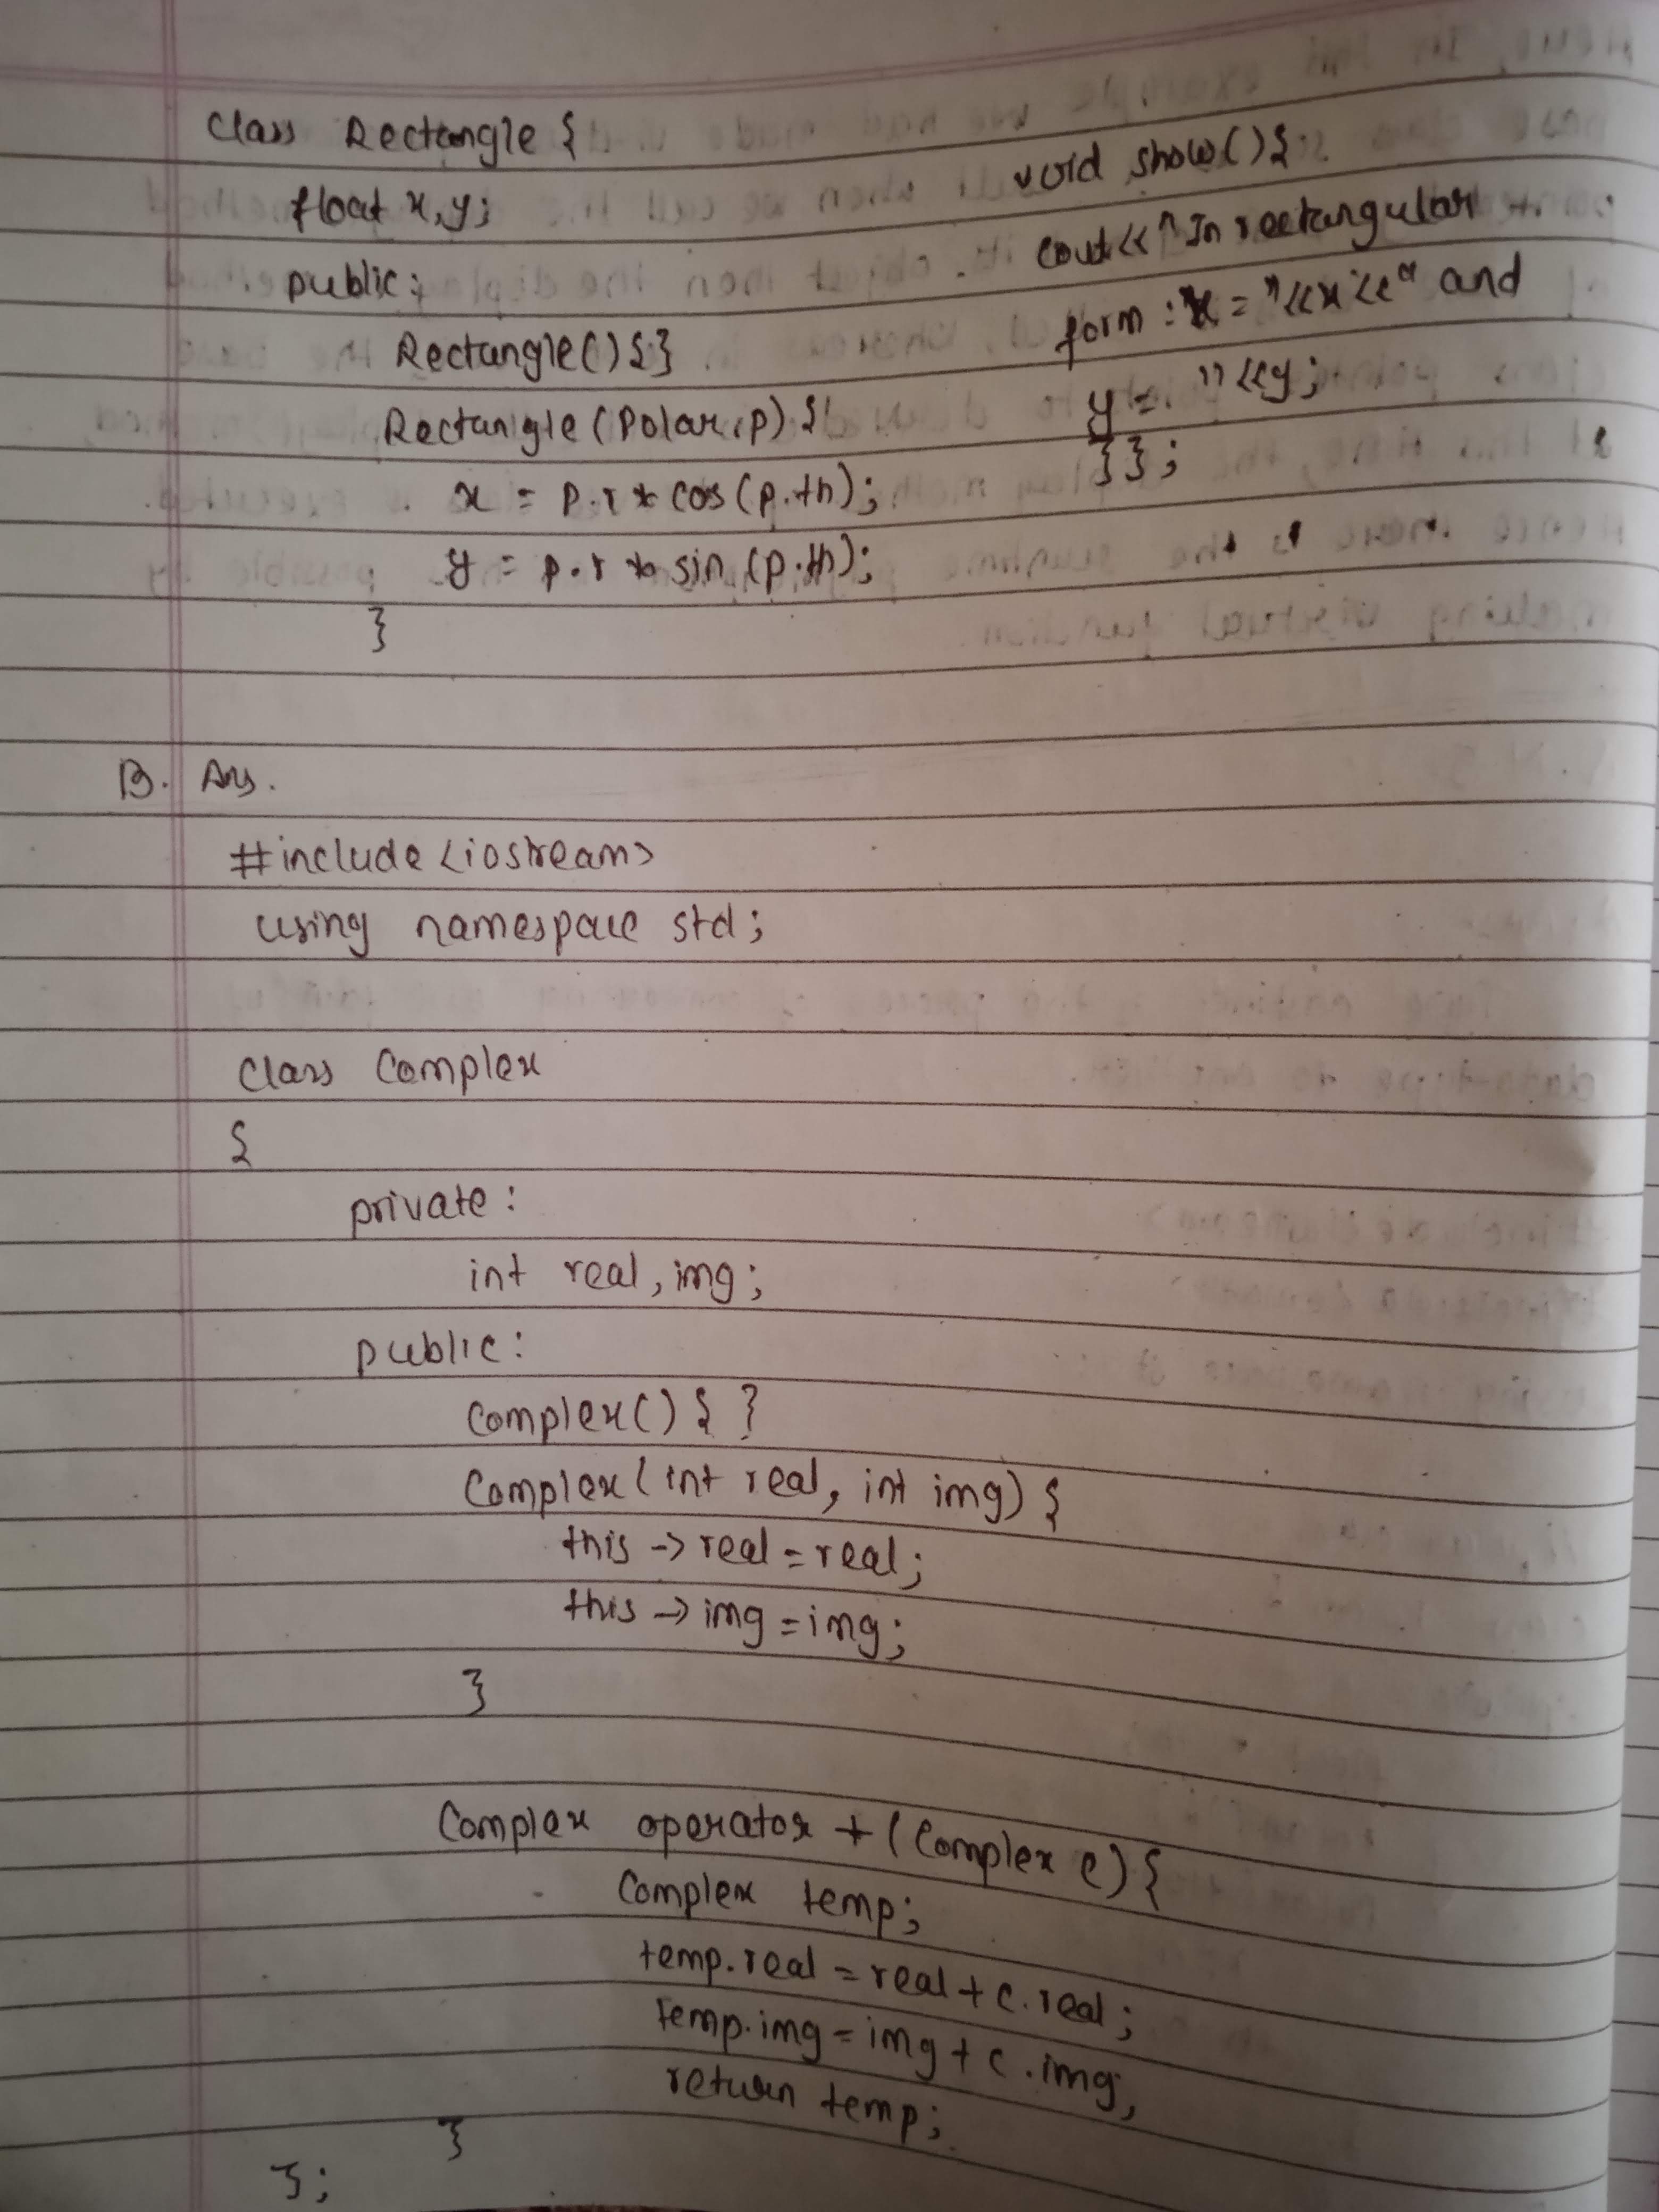 class Rectangle {
float x, y;
public:
Rectangle() { }
Rectangle (Polar p) {
x = p.r * cos (p.th);
y = p.r * sin (p.th);
}
void show() {
cout << "In rectangular
form : x = " << x << " and
y = " << y;
} };
B. Ans.
#include <iostream>
using namespace std;
class Complex
{
private:
int real, img;
public:
Complex() { }
Complex (int real, int img) {
this -> real = real;
this -> img = img;
}
Complex operator + (Complex c) {
Complex temp;
temp.real = real + c.real;
temp.img = img + c.img;
return temp;
}
};